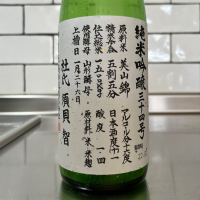 純米吟醸二十四号
原料米 美山錦 アルコール分十六度
精米歩合 五割五分 日本酒度
仕込総米 一五〇〇 酸度 一・四
使用酵母 山形酵母 原材料 米 米麹
上槽日 一月二十六日
杜氏 須貝智